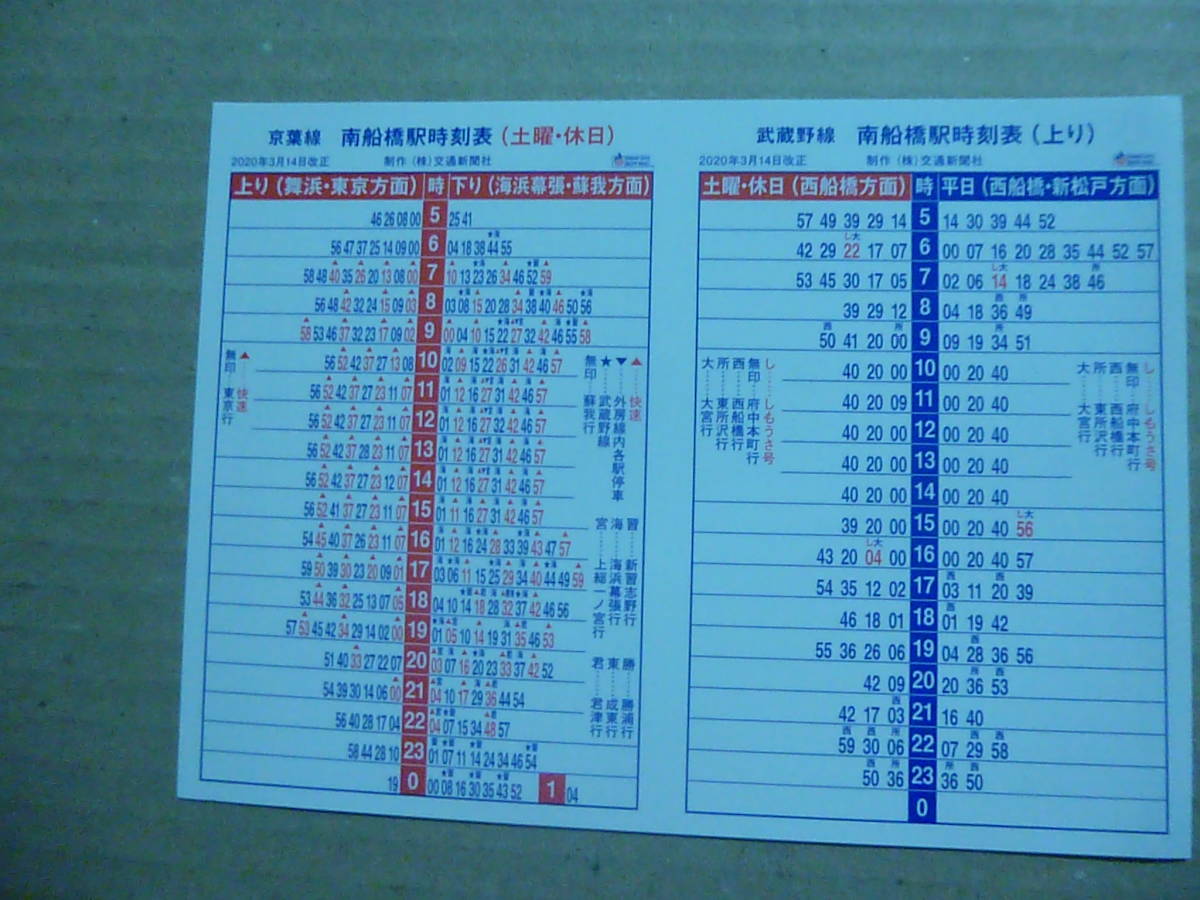 京葉線 南船橋駅時刻表(土曜・休日)
2020年3月14日改正 制作 (株)交通新聞社
上り(舞浜・東京方面) 時 下り(海浜幕張・蘇我方面)
46 26 08 00 5 25 41
56 47 37 25 14 09 00 6 04 18 38 44 55
58 48 40 35 26 20 13 08 00 7 10 13 23 26 34 46 52 59
56 48 42 32 24 15 09 03 8 03 08 15 20 28 34 38 40 46 50 56
58 53 46 37 32 23 17 09 02 9 00 04 10 15 22 27 32 42 46 55 58
56 52 42 37 27 13 08 10 02 09 15 22 26 31 42 46 57
56 52 42 37 27 23 11 07 11 01 12 16 27 31 42 46 57
56 52 42 37 27 23 11 07 12 01 12 16 27 32 42 46 57
56 52 42 37 28 23 11 07 13 01 12 16 27 31 42 46 57
56 52 42 37 27 23 12 07 14 01 12 16 27 31 42 46 57
56 52 41 37 27 23 11 07 15 01 11 16 27 31 42 46 57
54 45 40 37 26 23 11 07 16 01 12 16 24 28 33 39 43 47 57
59 50 39 30 23 20 09 01 17 03 06 11 15 25 29 34 40 44 49 59
53 44 36 32 25 13 07 05 18 04 10 14 18 28 32 37 42 46 56
57 53 45 42 34 29 14 02 00 19 01 05 10 14 19 31 35 46 53
51 40 33 27 22 07 20 03 07 16 20 23 33 37 42 52
54 39 30 14 06 00 21 04 10 17 29 36 44 54
56 40 28 17 04 22 04 07 15 34 48 57
58 44 28 10 23 01 07 11 14 24 34 46 54
19 0 00 08 16 30 35 43 52 1 04
▲……快速
無印……東京行
▲……快速
▼……外房線内各駅停車
★……武蔵野線
無印……蘇我行
習……新習志野行
海……海浜幕張行
宮……上総一ノ宮行
勝……勝浦行
東……成東行
君……君津行
武蔵野線 南船橋駅時刻表(上り)
2020年3月14日改正 制作 (株)交通新聞社
土曜・休日(西船橋方面) 時 平日(西船橋・新松戸方面)
57 49 39 29 14 5 14 30 39 44 52
し大
42 29 22 17 07 6 00 07 16 20 28 35 44 52 57
し大 所
53 45 30 17 05 7 02 06 14 18 24 38 46
西 所
39 29 12 8 04 18 36 49
西 所 所
50 41 20 00 9 09 19 34 51
40 20 00 10 00 20 40
40 20 09 11 00 20 40
40 20 00 12 00 20 40
40 20 00 13 00 20 40
40 20 00 14 00 20 40
し大
39 20 00 15 00 20 40 56
し大
43 20 04 00 16 00 20 40 57
西 西
54 35 12 02 17 03 11 20 39
西
46 18 01 18 01 19 42
西
55 36 26 06 19 04 28 36 56
所 西
42 09 20 20 36 53
西
42 17 03 21 16 40
西 西 所 西 西
59 30 06 22 07 29 58
西 所 所 西
50 36 23 36 50
0
し……しもうさ号
無印……府中本町行
西……西船橋行
所……東所沢行
大……大宮行
し……しもうさ号
無印……府中本町行
西……西船橋行
所……東所沢行
大……大宮行